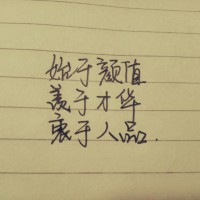 始于颜值
羡于才华
衷于人品.